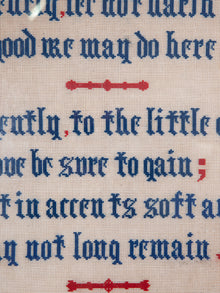 let not harsh
good we may do here
ently, to the little c
ove be sure to gain;
t in accents soft an
y not long remain.